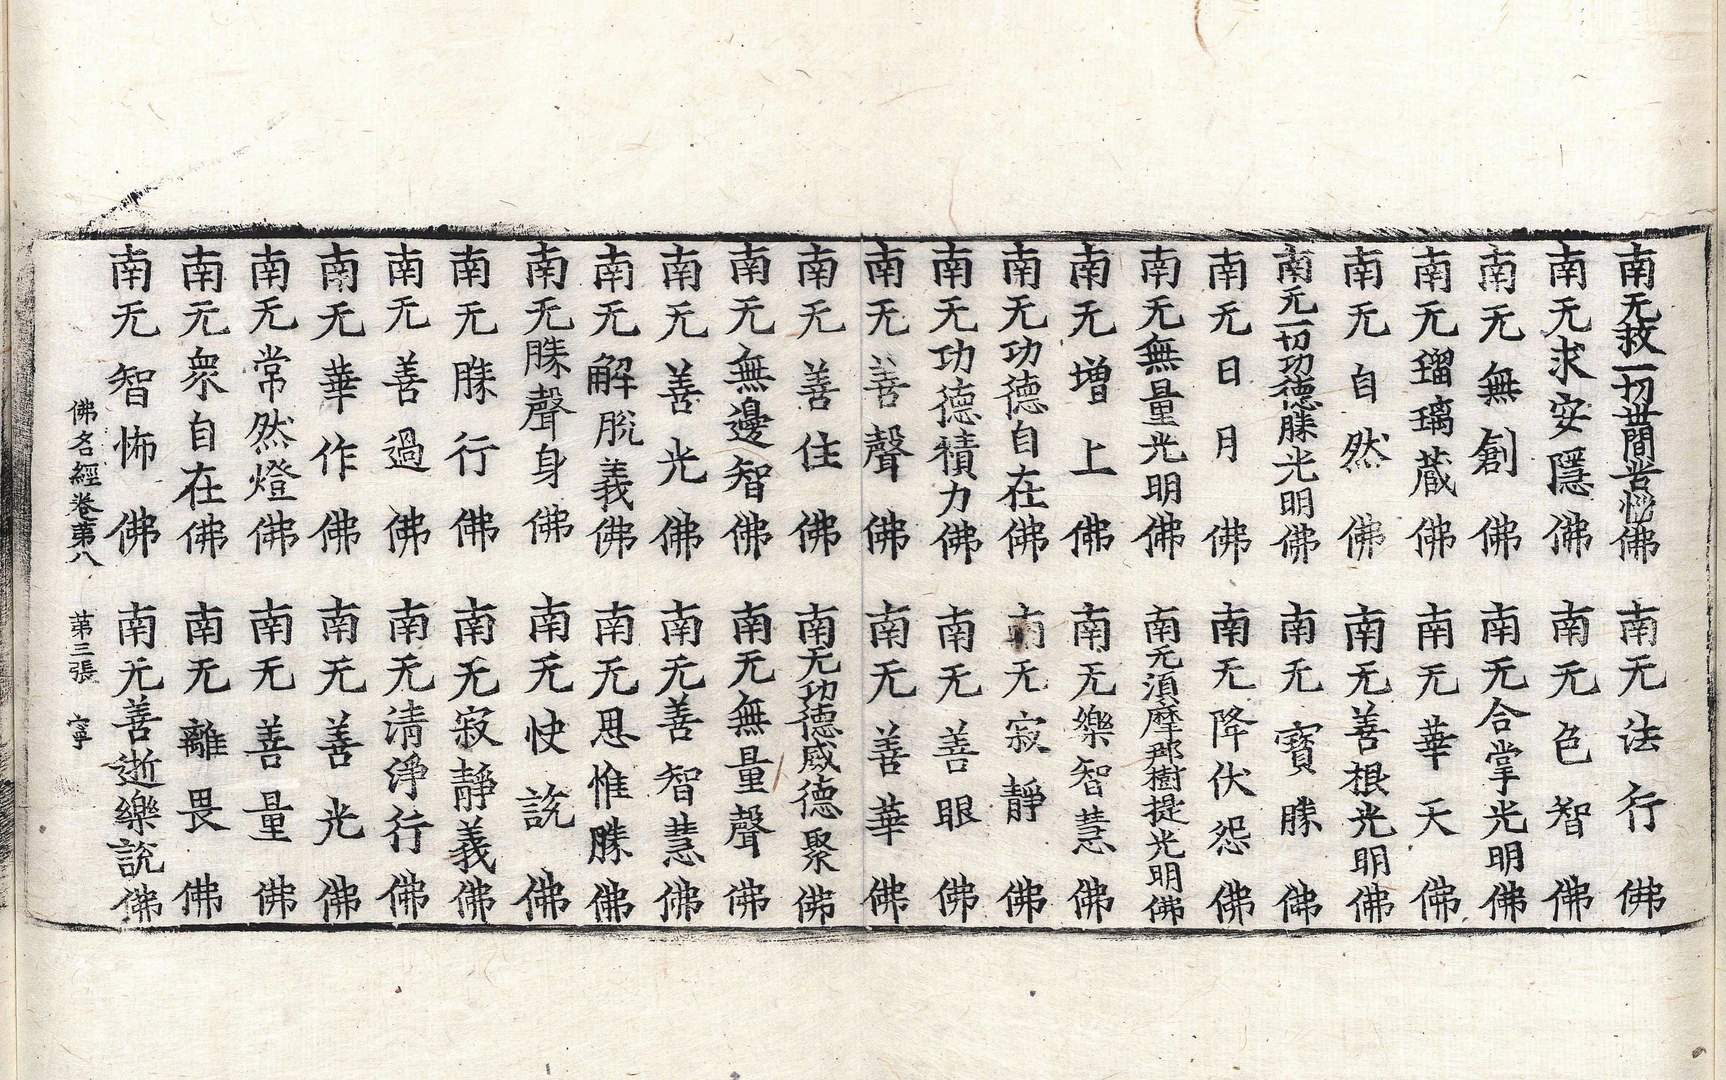 南无救一切世間苦惱佛　南无法行佛
南无求安隱佛　南无色智佛
南无無創佛　南无合掌光明佛
南无瑠璃藏佛　南无華天佛
南无自然佛　南无善根光明佛
南无一切功德勝光明佛　南无寶勝佛
南无日月佛　南无降伏怨佛
南无無量光明佛　南无須摩那樹提光明佛
南无增上佛　南无樂智慧佛
南无功德自在佛　南无寂靜佛
南无功德積力佛　南无善眼佛
南无善聲佛　南无善華佛
南无善住佛　南无功德威德聚佛
南无無邊智佛　南无無量聲佛
南无善光佛　南无善智慧佛
南无解脫義佛　南无思惟勝佛
南无勝聲身佛　南无快說佛
南无勝行佛　南无寂靜義佛
南无善過佛　南无清淨行佛
南无華作佛　南无善光佛
南无常然燈佛　南无善量佛
南无衆自在佛　南无離畏佛
南无智怖佛　南无善逝樂說佛
佛名經卷第八　第三張　寧